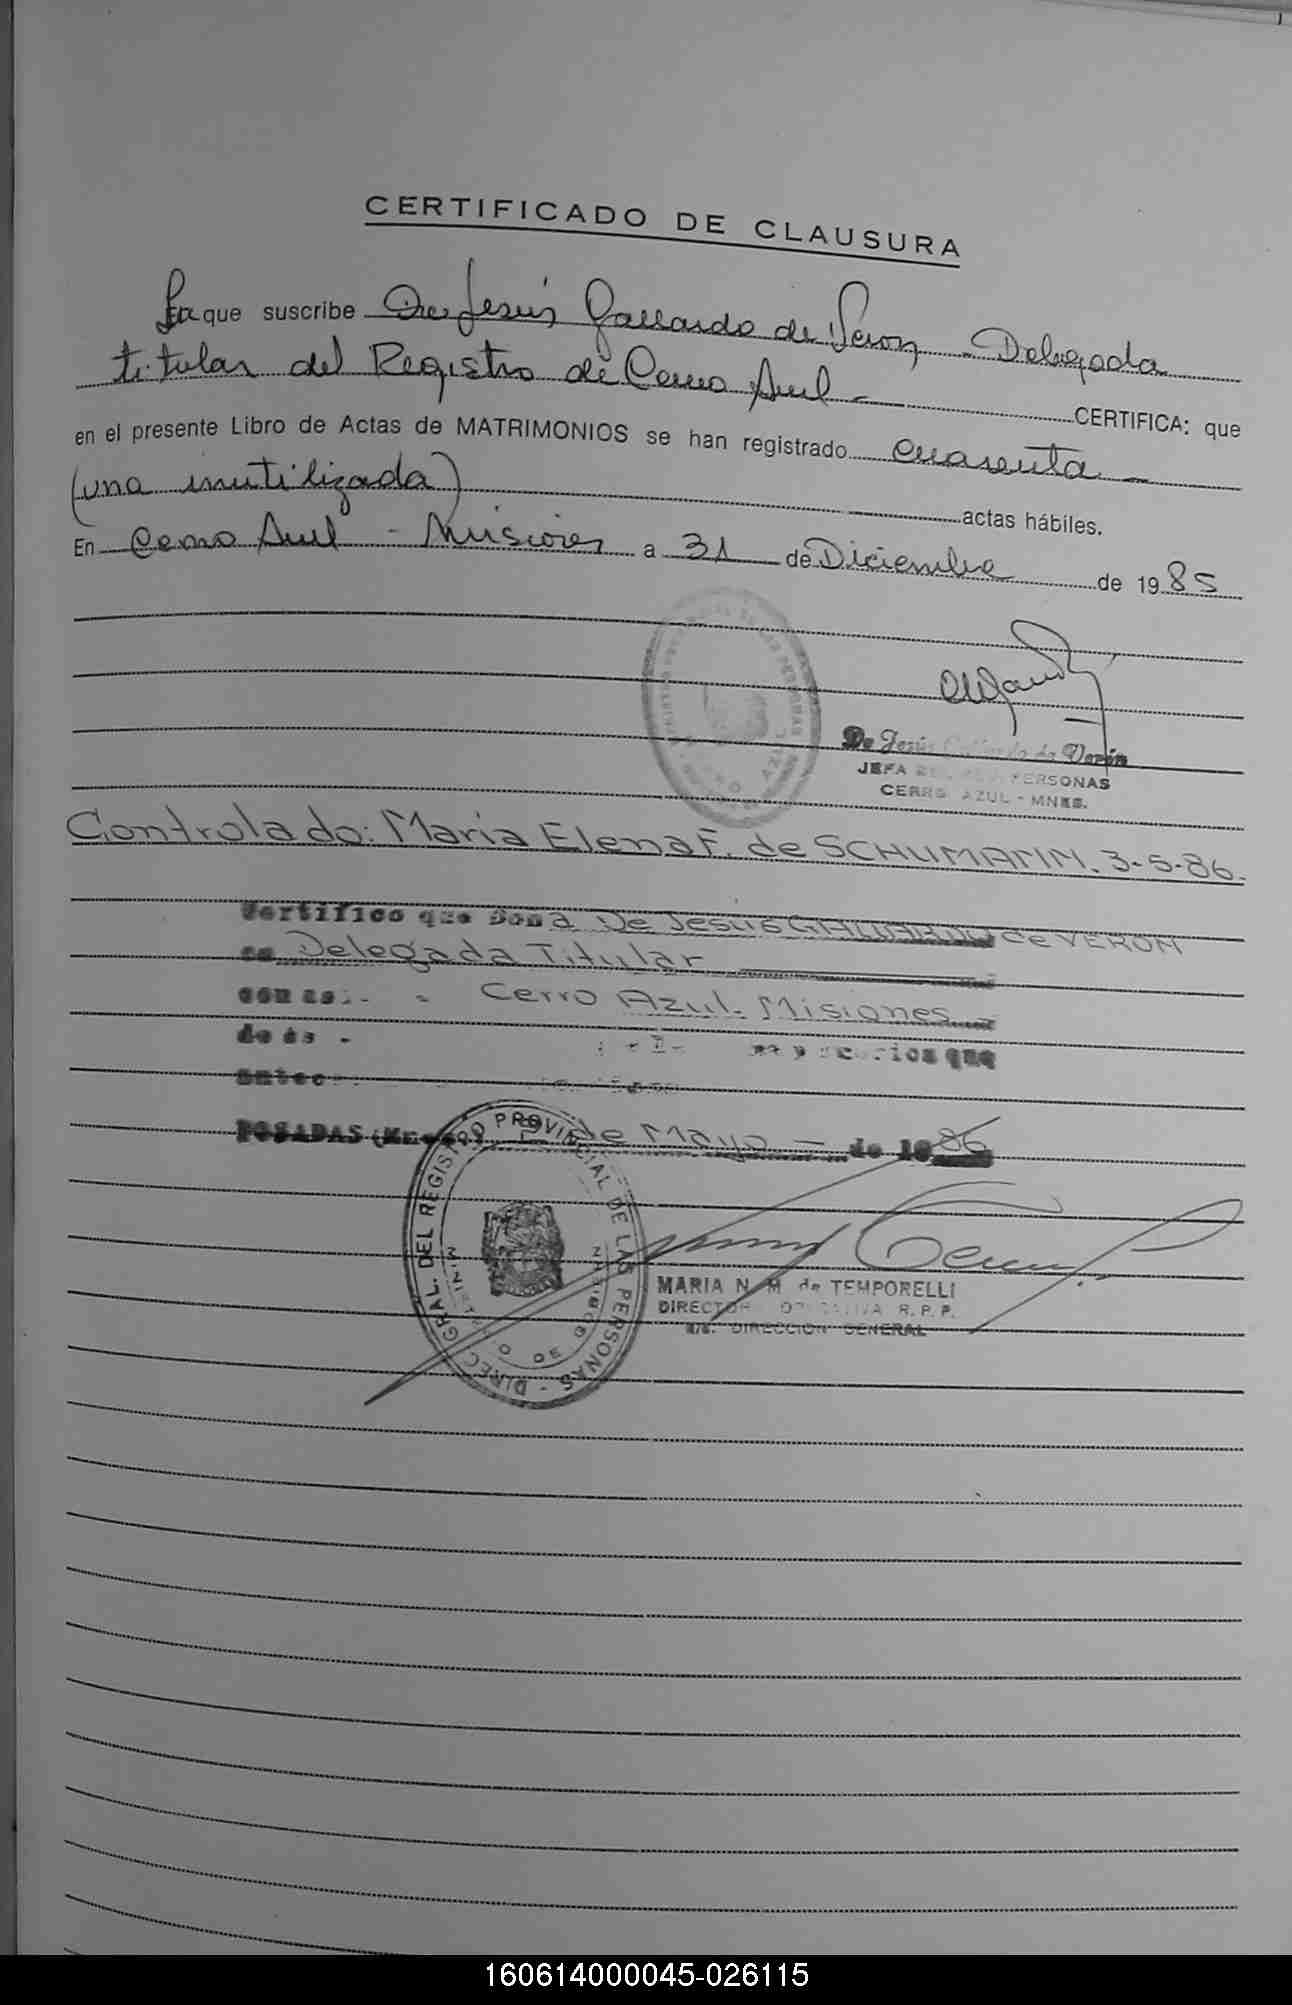 CERTIFICADO DE CLAUSURA
La que suscribe De Jesús Gallardo de Veron - Delegada
titular del Registro de Cerro Azul - CERTIFICA: que
en el presente Libro de Actas de MATRIMONIOS se han registrado cuarenta -
(una inutilizada) actas hábiles.
En Cerro Azul - Misiones a 31 de Diciembre de 1985
De Jesús Gallardo de Verón
JEFA PERSONAS
CERRO AZUL - MNES.
Controlado: Maria Elena F. de SCHUMANN. 3-5-86.
Certifico que Dona De Jesus GALLARDO de VERON
es Delegada Titular
con as Cerro Azul. Misiones
que
POSADAS de Mayo - de 1986
DIREC. GRAL. DEL REGISTRO PROVINCIAL DE LAS PERSONAS
MINISTERIO DE GOBIERNO
MARIA N. M. de TEMPORELLI
DIRECTORA R. P. P.
A/C. DIRECCION GENERAL
160614000045-026115